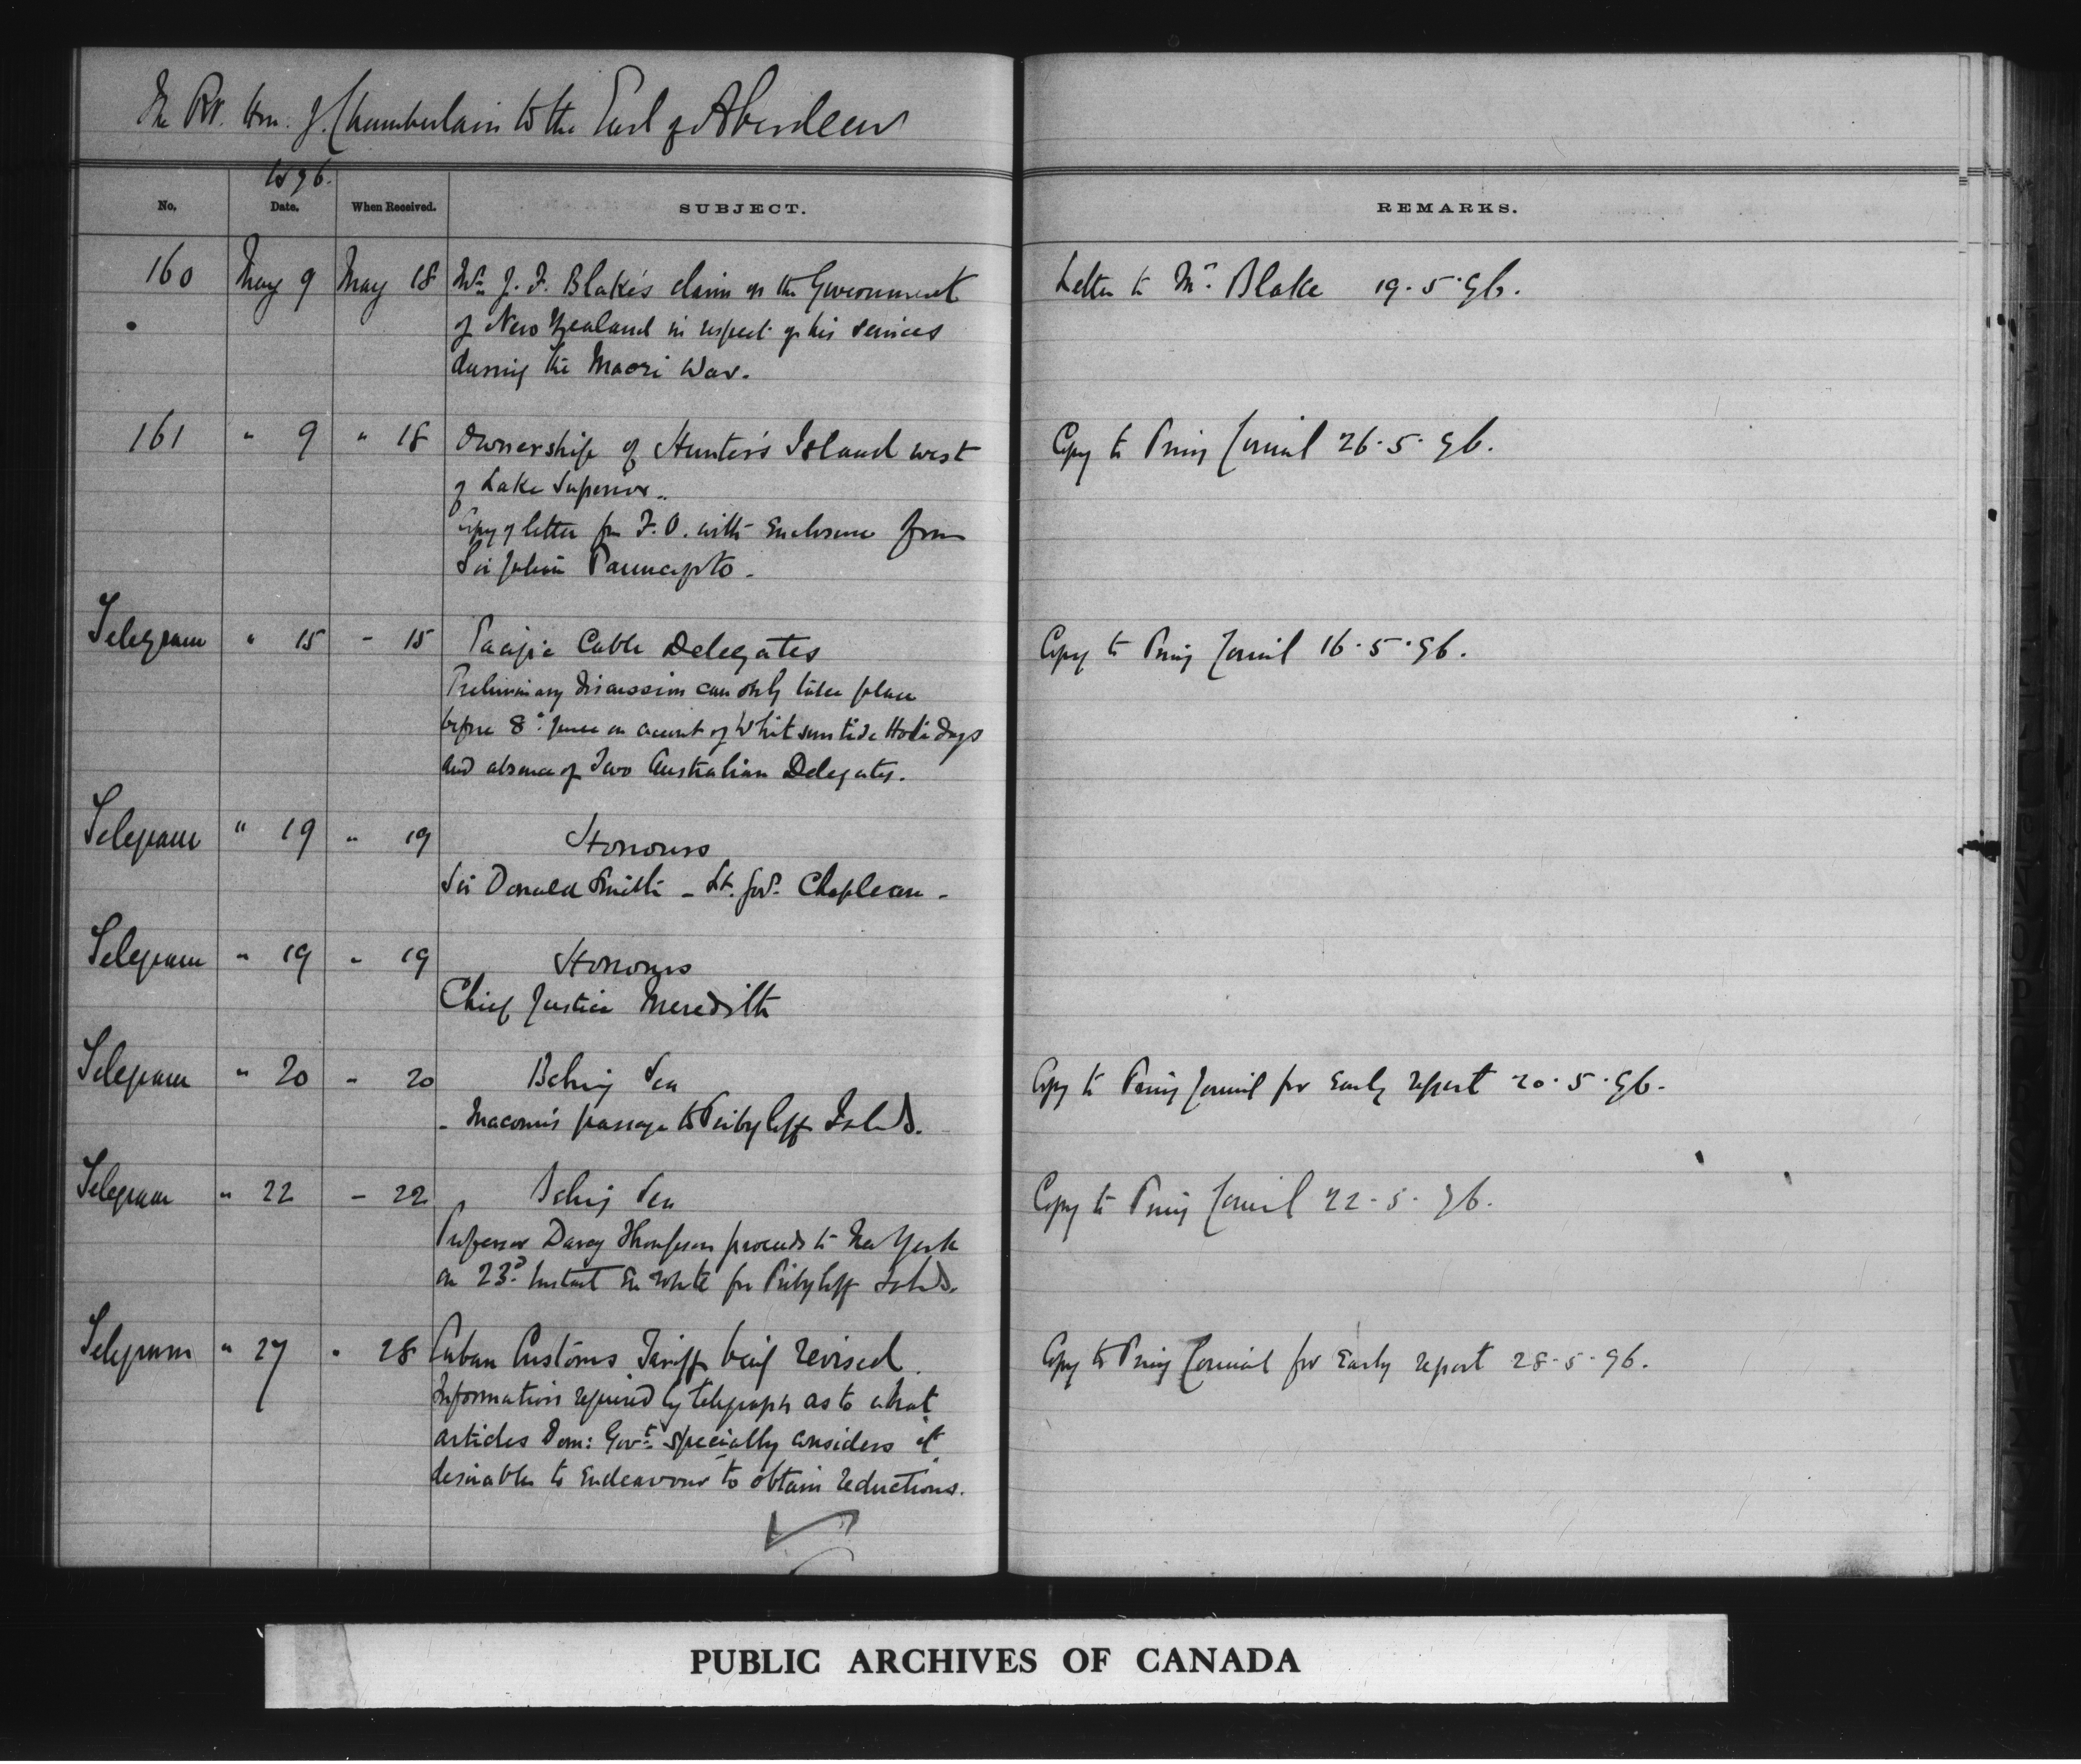 The Rt. Hon. J. Chamberlain to the Earl of Aberdeen
1896.
No. Date. When Received. SUBJECT. REMARKS.
160 May 9 May 18 Mr. J. F. Blake's claim on the Government Letter to Mr. Blake 19.5.96.
of New Zealand in respect of his services
during the Maori War.
161 " 9 " 18 Ownership of Hunter's Island west Copy to Privy Council 26.5.96.
of Lake Superior.
Copy of letter fm F.O. with Enclosure from
Sir Julian Pauncefote.
Telegram " 15 - 15 Pacific Cable Delegates Copy to Privy Council 16.5.96.
Preliminary discussion can only take place
before 8th June on account of Whitsuntide Holidays
and absence of Two Australian Delegates.
Telegram " 19 " 19 Honours
Sir Donald Smith - Lt. Govr. Chapleau -
Telegram " 19 " 19 Honours
Chief Justice Meredith
Telegram " 20 - 20 Behring Sea Copy to Privy Council for Early report 20.5.96.
- Macoun's passage to Pribyloff Islds.
Telegram " 22 - 22 Behring Sea Copy to Privy Council 22-5-96.
Professor Darcy Thompson proceeds to New York
on 23rd Instant En route for Pribyloff Islds.
Telegram " 27 " 28 Cuban Customs Tariff being revised. Copy to Privy Council for Early report 28-5-96.
Information required by telegraph as to what
articles Dom: Govt: specially considers it
desirable to Endeavour to obtain reductions.
PUBLIC ARCHIVES OF CANADA